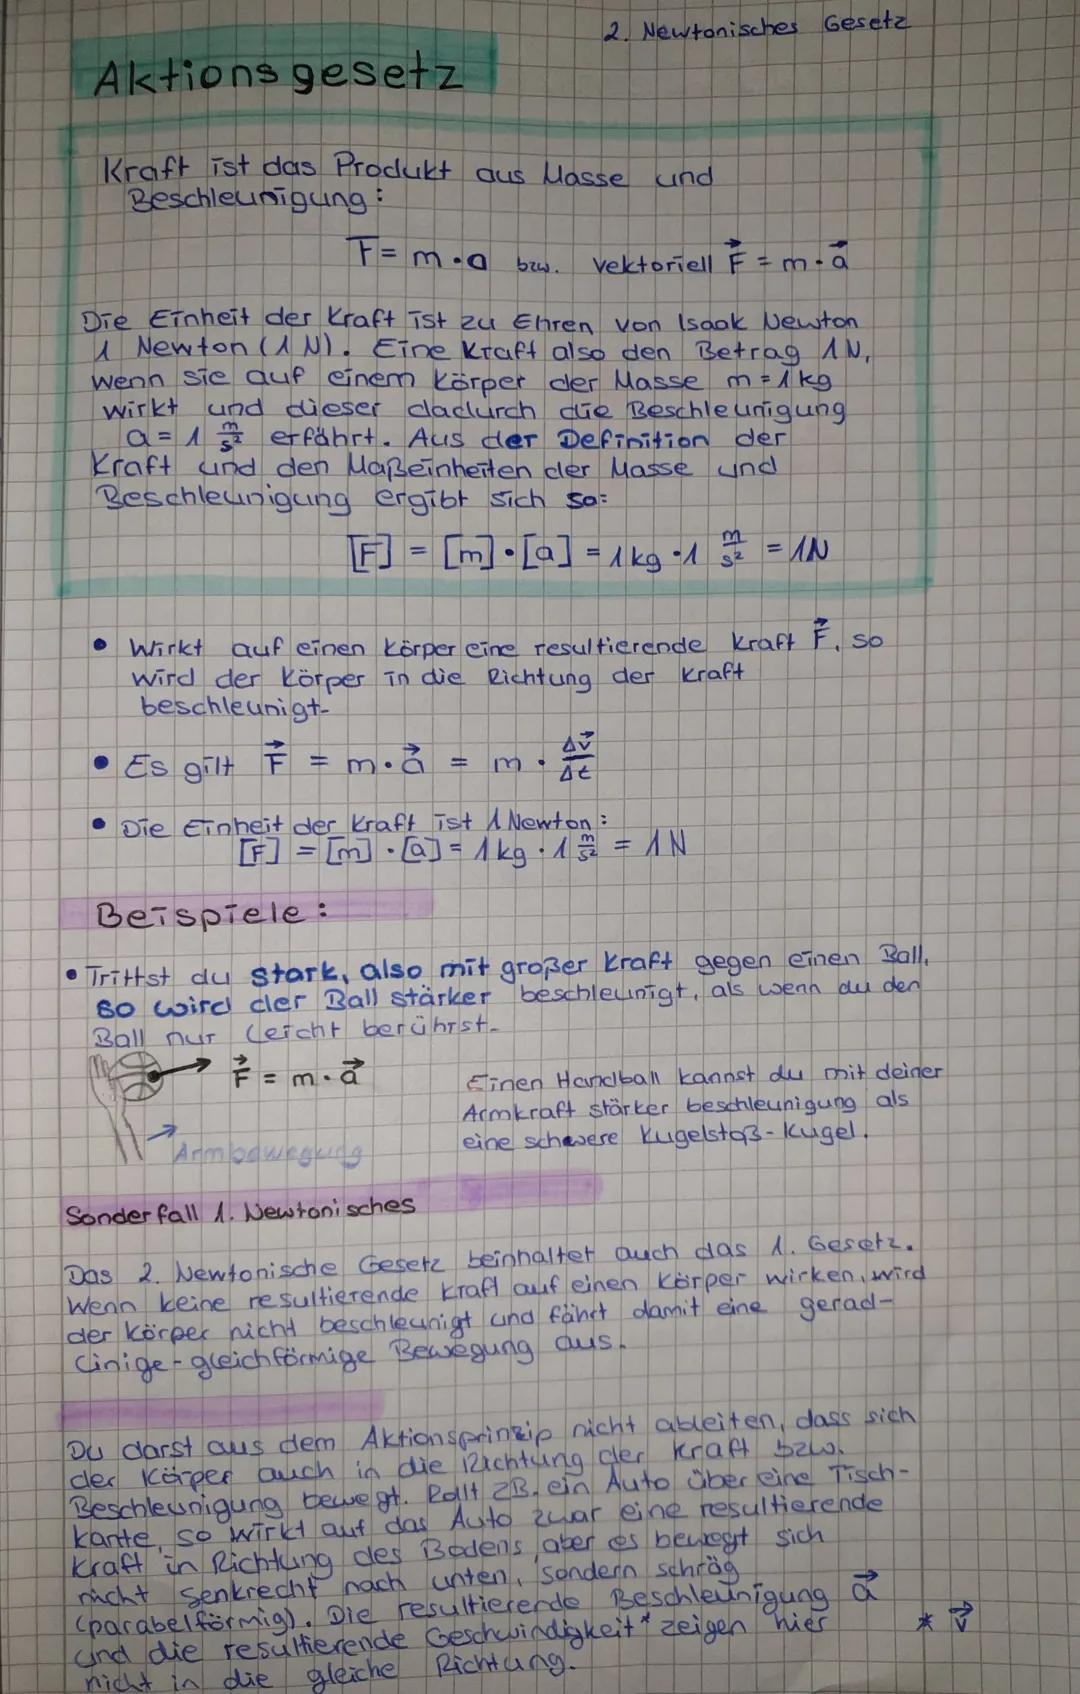 2. Newtonisches Gesetz
Aktionsgesetz
Kraft ist das Produkt aus Masse und
Beschleunigung:
F = m · a bzw. vektoriell F⃗ = m · a⃗
Die Einheit der Kraft ist zu Ehren von Isaak Newton
1 Newton (1 N). Eine Kraft also den Betrag 1N,
wenn sie auf einem Körper der Masse m = 1 kg
wirkt und dieser dadurch die Beschleunigung
a = 1 m/s² erfährt. Aus der Definition der
Kraft und den Maßeinheiten der Masse und
Beschleunigung ergibt sich so:
[F] = [m] · [a] = 1 kg · 1 m/s² = 1N
• Wirkt auf einen Körper eine resultierende Kraft F⃗, so
wird der Körper in die Richtung der Kraft
beschleunigt.
• Es gilt F⃗ = m · a⃗ = m · Δv⃗/Δt
• Die Einheit der Kraft ist 1 Newton:
[F] = [m] · [a] = 1 kg · 1 m/s² = 1 N
Beispiele:
• Trittst du stark, also mit großer Kraft gegen einen Ball,
so wird der Ball stärker beschleunigt, als wenn du den
Ball nur leicht berührst.
F⃗ = m · a⃗
Armbewegung
Einen Handball kannst du mit deiner
Armkraft stärker beschleunigung als
eine schwere Kugelstoß-Kugel.
Sonderfall 1. Newtonisches
Das 2. Newtonische Gesetz beinhaltet auch das 1. Gesetz.
Wenn keine resultierende Kraft auf einen Körper wirken, wird
der Körper nicht beschleunigt und fährt damit eine gerad-
linige-gleichförmige Bewegung aus.
Du darst aus dem Aktionsprinzip nicht ableiten, dass sich
der Körper auch in die Richtung der Kraft bzw.
Beschleunigung bewegt. Rollt zB. ein Auto über eine Tisch-
kante, so wirkt auf das Auto zwar eine resultierende
Kraft in Richtung des Bodens, aber es bewegt sich
nicht senkrecht nach unten, sondern schräg
(parabelförmig). Die resultierende Beschleunigung a⃗
und die resultierende Geschwindigkeit* zeigen hier
* v⃗
nicht in die gleiche Richtung.